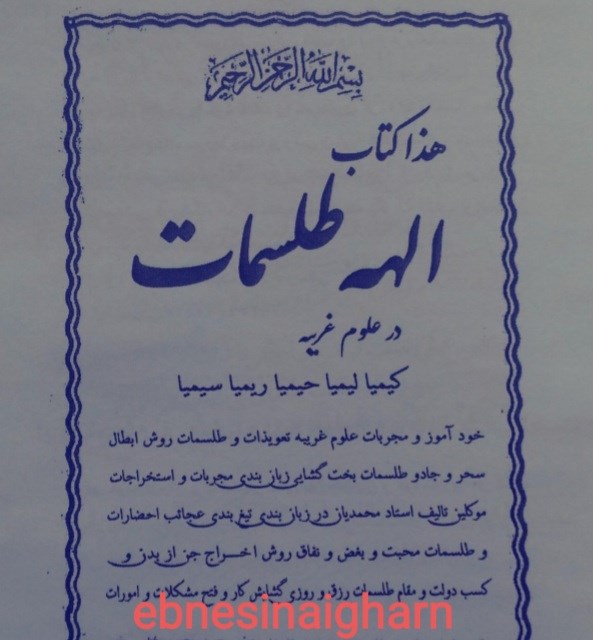 بسم الله الرحمن الرحیم
هذا کتاب
الهه طلسمات
در علوم غریبه
کیمیا لیمیا حیمیا ریمیا سیمیا
خود آموز و مجربات علوم غریبه تعویذات و طلسمات روش ابطال
سحر و جادو طلسمات بخت گشایی زبان بندی مجربات و استخراجات
موکلین تالیف استاد محمدیاز در زبان بندی تیغ بندی عجائب احضارات
و طلسمات محبت و بغض و نفاق روش اخراج جن از بدن و
کسب دولت و مقام طلسمات رزق و روزی گشایش کار و فتح مشکلات و امورات
ebnesinaigharn